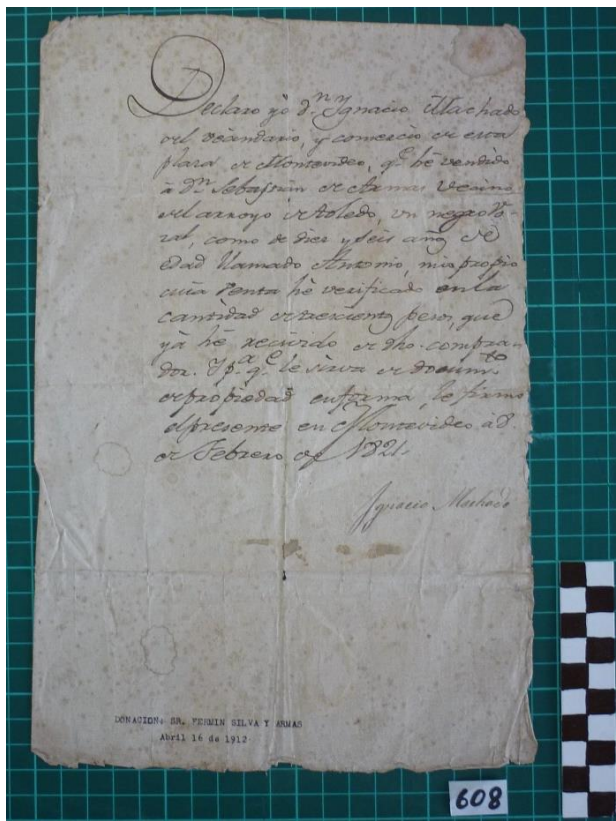 Declaro yo d.ⁿ Ygnacio Machado
del vecindario, y comercio de esta
plaza de Montevideo, q.ᵉ hé vendido
à D.ⁿ Sebastian de Armas vecino
del arroyo de toledo, un negro bo-
zal, como de diez y seis años de
edad llamado Antonio, mio propio
cuia venta hé verificado en la
cantidad de trescientos pesos, que
yà hé recivido de dho. compra-
dor. Y p.ᵃ q.ᵉ le sirva de docum.ᵗᵒ
de propiedad en forma, le firmo
el presente en Montevideo a 8.
de Febrero de 1821.
Ygnacio Machado
DONACION: SR. FERMIN SILVA Y ARMAS
Abril 16 de 1912
608